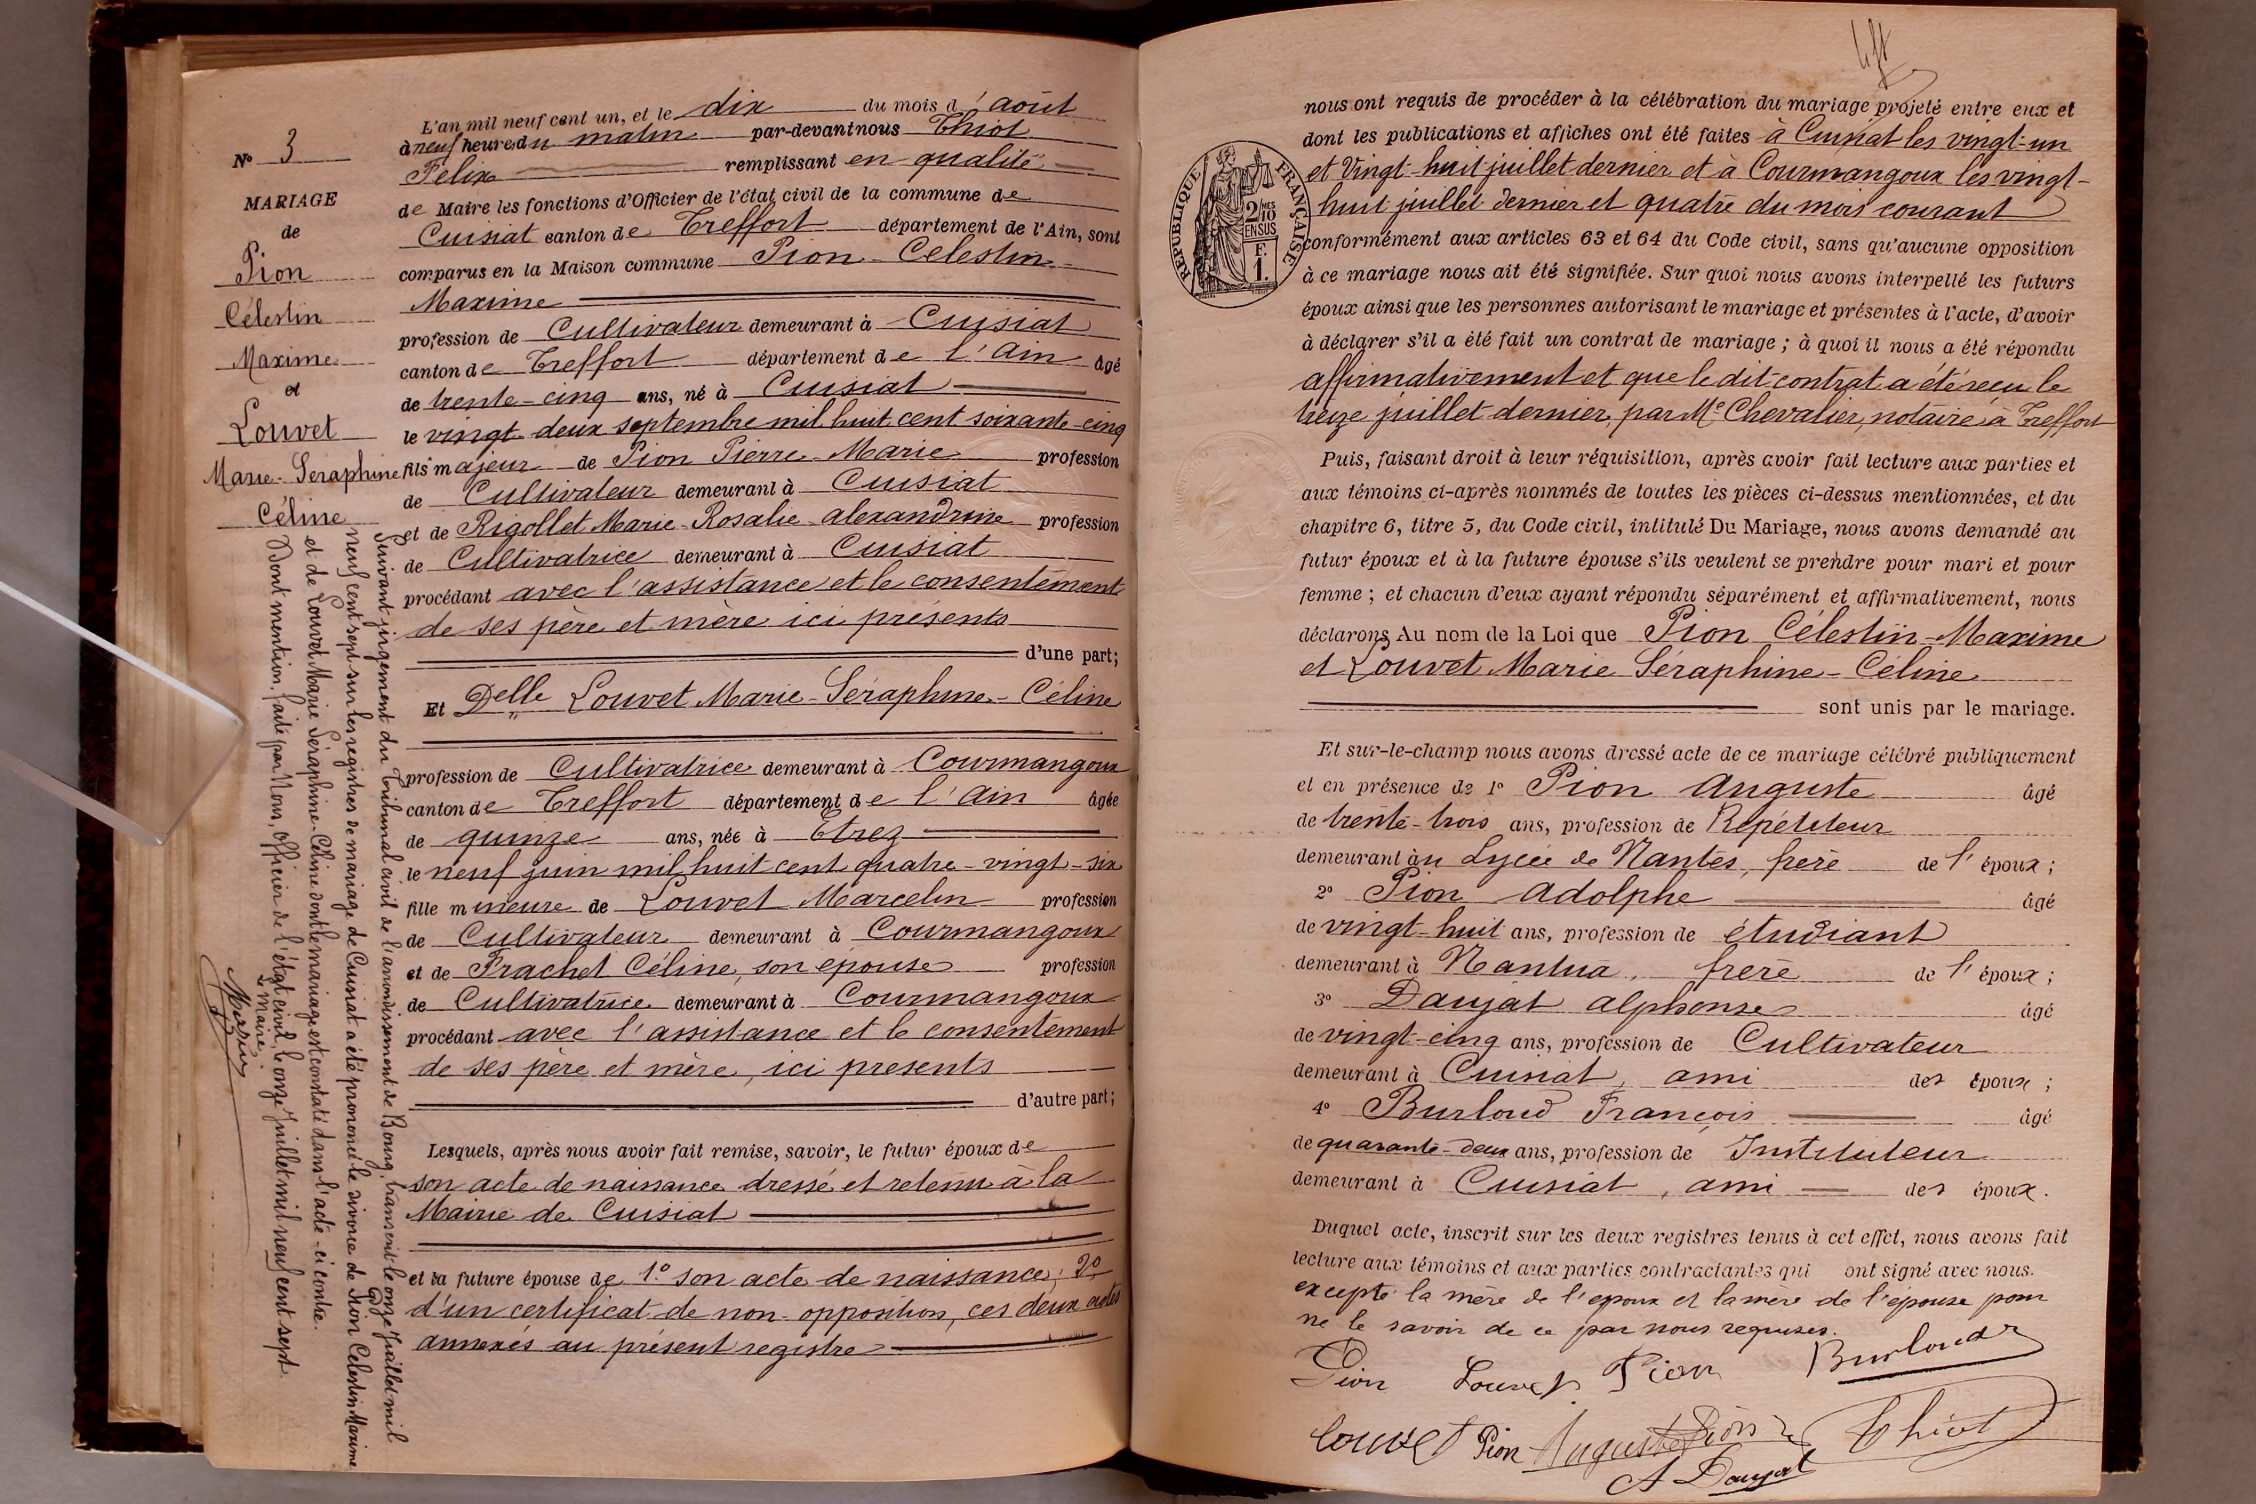 N° 3
MARIAGE
de
Pion
Célestin
Maxime
et
Louvet
Marie-Séraphine
Céline
Suivant jugement du Tribunal civil de l'arrondissement de Bourg, transcrit le onze Juillet mil
neuf cent sept sur les registres de mariage de Cuisiat a été prononcé le divorce de Pion Célestin Maxime
et de Louvet Marie Séraphine-Céline dont le mariage est constaté dans l'acte ci-contre.
Dont mention faite par Nous, Officier de l'état civil, le onze Juillet mil neuf cent sept
Le Maire
L'an mil neuf cent un, et le dix du mois d'août
à neuf heures du matin par-devant nous Thiot
Félix remplissant en qualité
de Maire les fonctions d'Officier de l'état civil de la commune de
Cuisiat canton de Treffort département de l'Ain, sont
comparus en la Maison commune Pion Célestin
Maxime
profession de Cultivateur demeurant à Cuisiat
canton de Treffort département de l'Ain âgé
de trente-cinq ans, né à Cuisiat
le vingt deux septembre mil huit cent soixante-cinq
fils majeur de Pion Pierre-Marie profession
de Cultivateur demeurant à Cuisiat
et de Rigollet Marie-Rosalie-alexandrine profession
de Cultivatrice demeurant à Cuisiat
procédant avec l'assistance et le consentement
de ses père et mère ici présents
d'une part;
Et Delle Louvet Marie-Séraphine-Céline
profession de Cultivatrice demeurant à Courmangoux
canton de Treffort département de l'Ain âgée
de quinze ans, née à Etrez
le neuf juin mil huit cent quatre-vingt-six
fille mineure de Louvet Marcelin profession
de Cultivateur demeurant à Courmangoux
et de Frachet Céline, son épouse profession
de Cultivatrice demeurant à Courmangoux
procédant avec l'assistance et le consentement
de ses père et mère, ici présents
d'autre part;
Lesquels, après nous avoir fait remise, savoir, le futur époux de
son acte de naissance dressé et retenu à la
Mairie de Cuisiat
et la future épouse de 1° son acte de naissance; 2°
d'un certificat de non opposition, ces deux actes
annexés au présent registre
nous ont requis de procéder à la célébration du mariage projeté entre eux et
dont les publications et affiches ont été faites à Cuisiat les vingt-un
et Vingt-huit juillet dernier et à Courmangoux les vingt-
huit juillet dernier et quatre du mois courant
conformément aux articles 63 et 64 du Code civil, sans qu'aucune opposition
à ce mariage nous ait été signifiée. Sur quoi nous avons interpellé les futurs
époux ainsi que les personnes autorisant le mariage et présentes à l'acte, d'avoir
à déclarer s'il a été fait un contrat de mariage; à quoi il nous a été répondu
affirmativement et que le dit contrat a été reçu le
treize juillet dernier, par Me Chevalier, notaire à Treffort
Puis, faisant droit à leur réquisition, après avoir fait lecture aux parties et
aux témoins ci-après nommés de toutes les pièces ci-dessus mentionnées, et du
chapitre 6, titre 5, du Code civil, intitulé Du Mariage, nous avons demandé au
futur époux et à la future épouse s'ils veulent se prendre pour mari et pour
femme; et chacun d'eux ayant répondu séparément et affirmativement, nous
déclarons Au nom de la Loi que Pion Célestin-Maxime
et Louvet Marie Séraphine-Céline
sont unis par le mariage.
Et sur-le-champ nous avons dressé acte de ce mariage célébré publiquement
et en présence de 1° Pion Auguste âgé
de trente-trois ans, profession de Répétiteur
demeurant au Lycée de Nantes, frère de l'époux;
2° Pion Adolphe âgé
de vingt-huit ans, profession de étudiant
demeurant à Nantua, frère de l'époux;
3° Daujat alphonse âgé
de vingt-cinq ans, profession de Cultivateur
demeurant à Cuisiat, ami des époux;
4° Burloud François âgé
de quarante-deux ans, profession de Instituteur
demeurant à Cuisiat, ami des époux.
Duquel acte, inscrit sur les deux registres tenus à cet effet, nous avons fait
lecture aux témoins et aux parties contractantes qui ont signé avec nous.
excepté la mère de l'époux et la mère de l'épouse pour
ne le savoir de ce par nous requises.
Pion Louvet Pion Burloud
Louvet Pion Auguste Pion Thiot
A Daujat
RÉPUBLIQUE FRANÇAISE
2/10
MES
EN SUS
F.
1.